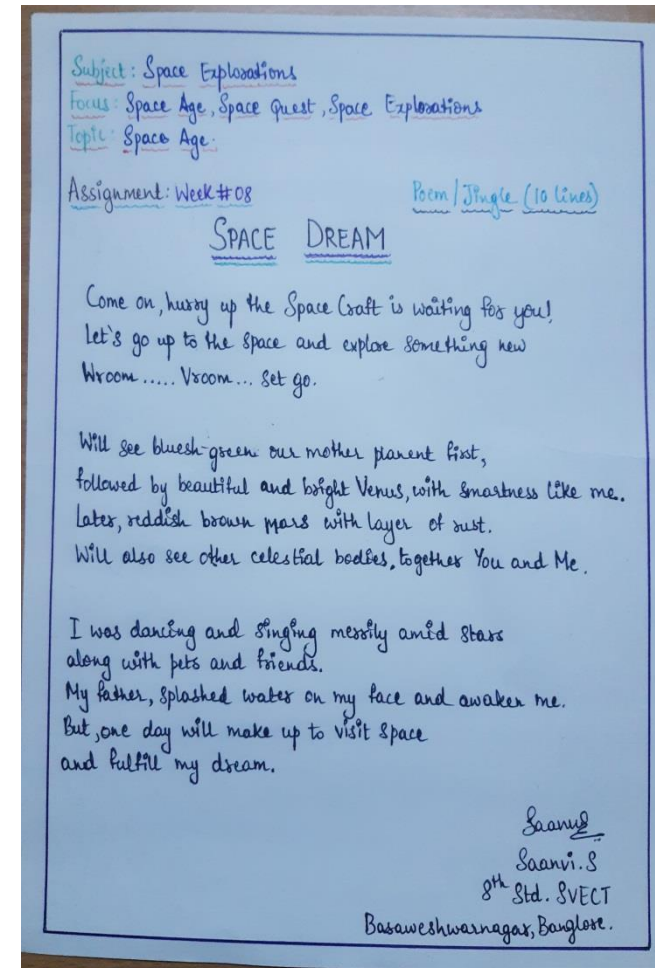 Subject: Space Explorations
Focus: Space Age, Space Quest, Space Explorations
Topic: Space Age.
Assignment: Week #08 Poem/Jingle (10 Lines)
SPACE DREAM
Come on, hurry up the Space Craft is waiting for you!
Let's go up to the space and explore something new
Wroom..... Vroom... Set go.
Will see bluesh-green our mother planent first,
followed by beautiful and bright Venus, with smartness like me.
Later, reddish brown Mars with layer of rust.
Will also see other celestial bodies, together You and Me.
I was dancing and singing merrily amid stars
along with pets and friends.
My father, splashed water on my face and awaken me.
But, one day will make up to visit space
and fulfill my dream.
Saanvi.S
8th Std. SVECT
Basaweshwarnagar, Banglore.